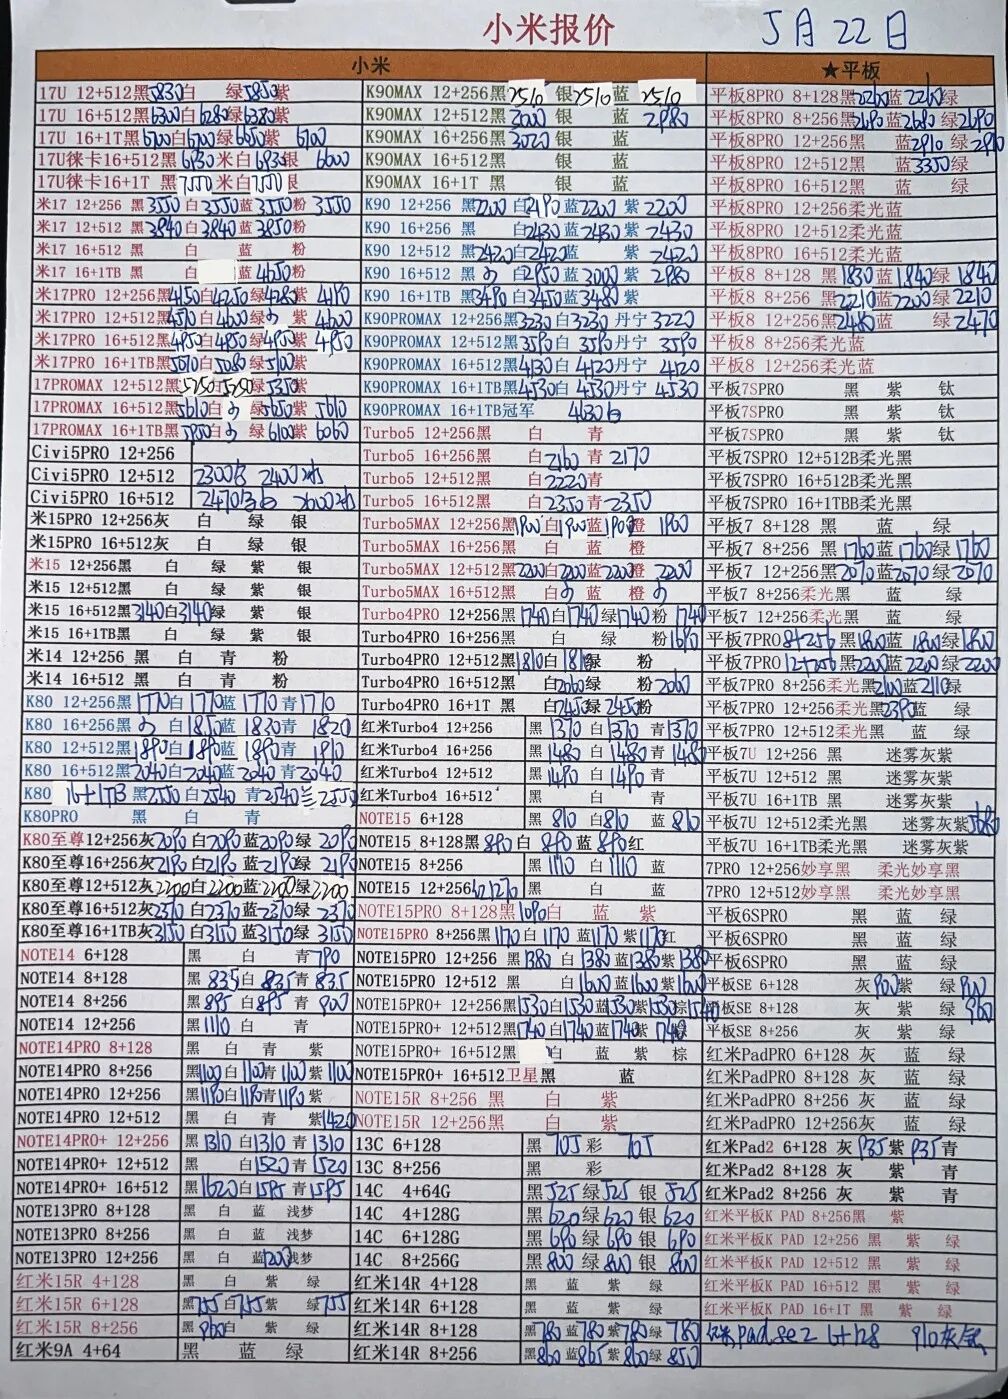 小米报价 5月22日
小米
★平板
17U 12+512黑5830白 绿5850紫
17U 16+512黑6300白6280绿6380紫
17U 16+1T黑6700白6700绿6650紫 6700
17U徕卡16+512黑6930米白6930银
17U徕卡16+1T 黑7550米白7550银
米17 12+256 黑3550白3550蓝3550粉 3550
米17 12+512 黑3840白3840蓝3850粉
米17 16+512 黑 白 蓝 粉
米17 16+1TB 黑 白 蓝4650粉
米17PRO 12+256黑4150白4250绿4280紫 4190
米17PRO 12+512黑4570白4600绿 紫 4600
米17PRO 16+512黑4950白4950绿4950紫 4950
米17PRO 16+1TB黑5070白5080绿5100紫
17PROMAX 12+512黑5250白5250绿5350紫
17PROMAX 16+512黑5610白 绿5650紫 5610
17PROMAX 16+1TB黑5950白 绿6100紫 6060
Civi5PRO 12+256
Civi5PRO 12+512 2300白 2400冰
Civi5PRO 16+512 2470
米15PRO 12+256灰 白 绿 银
米15PRO 16+512灰 白 绿 银
米15 12+256黑 白 绿 紫 银
米15 12+512黑 白 绿 紫 银
米15 16+512黑3140白3140绿 紫 银
米15 16+1TB黑 白 绿 紫 银
米14 12+256 黑 白 青 粉
米14 16+512 黑 白 青 粉
K80 12+256黑1770白1710蓝1710青1710
K80 16+256黑 白1850蓝1830青 1820
K80 12+512黑1890白1890蓝1890青 1910
K80 16+512黑2040白2040蓝2040青2040
K80 16+1TB 黑2550白2540 青2540兰2550
K80PRO 黑 白 青
K80至尊12+256灰2090白2090蓝2090绿 2090
K80至尊16+256灰2190白2190蓝2190绿 2190
K80至尊12+512灰2200白2200蓝2200绿2200
K80至尊16+512灰2370白2370蓝2370绿 2370
K80至尊16+1TB灰3150白3150蓝3150绿 3150
NOTE14 6+128 黑 白 青790
NOTE14 8+128 黑 835白 835青 835
NOTE14 8+256 黑 895白895青 900
NOTE14 12+256 黑1110白 青
NOTE14PRO 8+128 黑 白 青 紫
NOTE14PRO 8+256 黑1100白1100青1100紫1100
NOTE14PRO 12+256 黑1190白1190青1190紫
NOTE14PRO 12+512 黑 白 青 紫1420
NOTE14PRO+ 12+256 黑1310白1310青1310
NOTE14PRO+ 12+512 黑 白1520青1520
NOTE14PRO+ 16+512 黑1620白1595青1595
NOTE13PRO 8+128 黑 白 蓝 浅梦
NOTE13PRO 8+256 黑 白 蓝 浅梦
NOTE13PRO 12+256 黑 白 蓝1200浅梦
红米15R 4+128 黑 白 紫 绿
红米15R 6+128 黑755白755紫 绿755
红米15R 8+256 黑860白 紫 绿
红米9A 4+64 黑 蓝 绿
K90MAX 12+256黑2510 银2510蓝 2510
K90MAX 12+512黑3000 银 蓝 2980
K90MAX 16+256黑3020 银 蓝
K90MAX 16+512黑 银 蓝
K90MAX 16+1T 黑 银 蓝
K90 12+256 黑2200白2190蓝2200紫2200
K90 16+256 黑 白2430蓝2430紫2430
K90 12+512 黑2420白2420蓝 紫2420
K90 16+512 黑 白2950蓝3000紫2980
K90 16+1TB 黑3490白3450蓝3480紫
K90PROMAX 12+256黑3230白3230丹宁3220
K90PROMAX 12+512黑3590白3590丹宁3590
K90PROMAX 16+512黑4130白4120丹宁4120
K90PROMAX 16+1TB黑4530白4530丹宁4530
K90PROMAX 16+1TB冠军 4630白
Turbo5 12+256黑 白 青
Turbo5 16+256黑 白2160青2170
Turbo5 12+512黑 白2220青
Turbo5 16+512黑 白2350青2350
Turbo5MAX 12+256黑1900白1900蓝1900橙 1900
Turbo5MAX 16+256黑 白 蓝 橙
Turbo5MAX 12+512黑2200白2200蓝2200橙 2200
Turbo5MAX 16+512黑 白 蓝 橙
Turbo4PRO 12+256黑1740白1740绿1740粉1740
Turbo4PRO 16+256黑 白 绿 粉1690
Turbo4PRO 12+512黑1810白1810绿 粉
Turbo4PRO 16+512黑 白2060绿 粉2060
Turbo4PRO 16+1T 黑 白2450绿2450粉
红米Turbo4 12+256 黑1370白1370青1370
红米Turbo4 16+256 黑1480白1480青1480
红米Turbo4 12+512 黑1490白1490青
红米Turbo4 16+512 黑 白 青
NOTE15 6+128 黑 810白810 蓝 810
NOTE15 8+128黑890白 890蓝890红
NOTE15 8+256 黑1110白1110蓝
NOTE15 12+256 1270 黑 白 蓝
NOTE15PRO 8+128黑1090白 蓝 紫
NOTE15PRO 8+256黑1170白1170蓝1170紫1170红
NOTE15PRO 12+256 黑1380白1380蓝1380紫1380
NOTE15PRO 12+512 黑 白1600蓝1600紫1600
NOTE15PRO+ 12+256黑1530白1530蓝1530紫1530棕1540
NOTE15PRO+ 12+512黑1740白1740蓝1740紫1740棕
NOTE15PRO+ 16+512黑 白 蓝 紫 棕
NOTE15PRO+ 16+512卫星黑 蓝
NOTE15R 8+256 黑 白 紫
NOTE15R 12+256黑 白 紫
13C 6+128 黑 705彩 705
13C 8+256 黑 彩
14C 4+64G 黑525绿525银525
14C 4+128G 黑620绿620银620
14C 6+128G 黑690绿690银690
14C 8+256G 黑800绿800银800
红米14R 4+128 黑 蓝 紫 绿
红米14R 6+128 黑 蓝 紫 绿
红米14R 8+128 黑780蓝780紫780绿780
红米14R 8+256 黑860蓝865紫860绿850
平板8PRO 8+128黑2260蓝2260绿
平板8PRO 8+256黑2690蓝2680绿2690
平板8PRO 12+256黑 蓝2910绿2910
平板8PRO 12+512黑 蓝3350绿
平板8PRO 16+512黑 蓝 绿
平板8PRO 12+256柔光蓝
平板8PRO 12+512柔光蓝
平板8PRO 16+512柔光蓝
平板8 8+128 黑1830蓝1840绿1840
平板8 8+256 黑2210蓝2200绿2210
平板8 12+256黑2480蓝 绿2470
平板8 8+256柔光蓝
平板8 12+256柔光蓝
平板7SPRO 黑 紫 钛
平板7SPRO 黑 紫 钛
平板7SPRO 黑 紫 钛
平板7SPRO 12+512B柔光黑
平板7SPRO 16+512B柔光黑
平板7SPRO 16+1TBB柔光黑
平板7 8+128 黑 蓝 绿
平板7 8+256 黑1760蓝1760绿1760
平板7 12+256黑2070蓝2070绿2070
平板7 8+256柔光黑 蓝 绿
平板7 12+256柔光黑 蓝 绿
平板7PRO 8+256黑1800蓝1800绿1800
平板7PRO 12+256黑2200蓝2200绿2200
平板7PRO 8+256柔光黑2100蓝2110绿
平板7PRO 12+256柔光黑2390蓝 绿
平板7PRO 12+512柔光黑 蓝 绿
平板7U 12+256 黑 迷雾灰紫
平板7U 12+512 黑 迷雾灰紫
平板7U 16+1TB 黑 迷雾灰紫
平板7U 12+512柔光黑 迷雾灰紫3680
平板7U 16+1TB柔光黑 迷雾灰紫
7PRO 12+256妙享黑 柔光妙享黑
7PRO 12+512妙享黑 柔光妙享黑
平板6SPRO 黑 蓝 绿
平板6SPRO 黑 蓝 绿
平板6SPRO 黑 蓝 绿
平板SE 6+128 灰900紫 绿900
平板SE 8+128 灰 紫 绿960
平板SE 8+256 灰 紫 绿
红米PadPRO 6+128 灰 蓝 绿
红米PadPRO 8+128 灰 蓝 绿
红米PadPRO 8+256灰 蓝 绿
红米PadPRO 12+256灰 蓝 绿
红米Pad2 6+128 灰935紫935青
红米Pad2 8+128 灰 紫 青
红米Pad2 8+256 灰 紫 青
红米平板K PAD 8+256黑 紫
红米平板K PAD 12+256 黑 紫 绿
红米平板K PAD 12+512 黑 紫 绿
红米平板K PAD 16+512 黑 紫 绿
红米平板K PAD 16+1T 黑 紫 绿
红米padse2 6+128 910灰